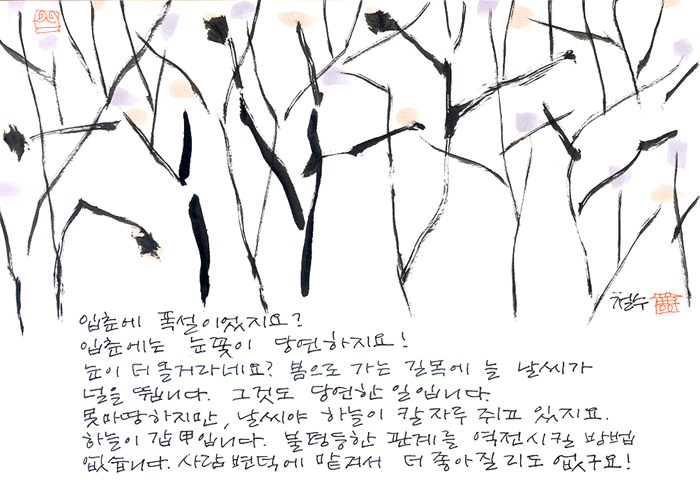 철수
입춘에 폭설이었지요?
입춘에는 눈꽃이 당연하지요!
눈이 더 올거라네요? 봄으로 가는 길목에 늘 날씨가
널을 뜁니다. 그것도 당연한 일입니다.
못마땅하지만, 날씨야 하늘이 칼자루 쥐고 있지요.
하늘이 갑甲입니다. 불평등한 관계를 역전시킬 방법
없습니다. 사람 변덕에 맡겨서 더 좋아질 리도 없구요!